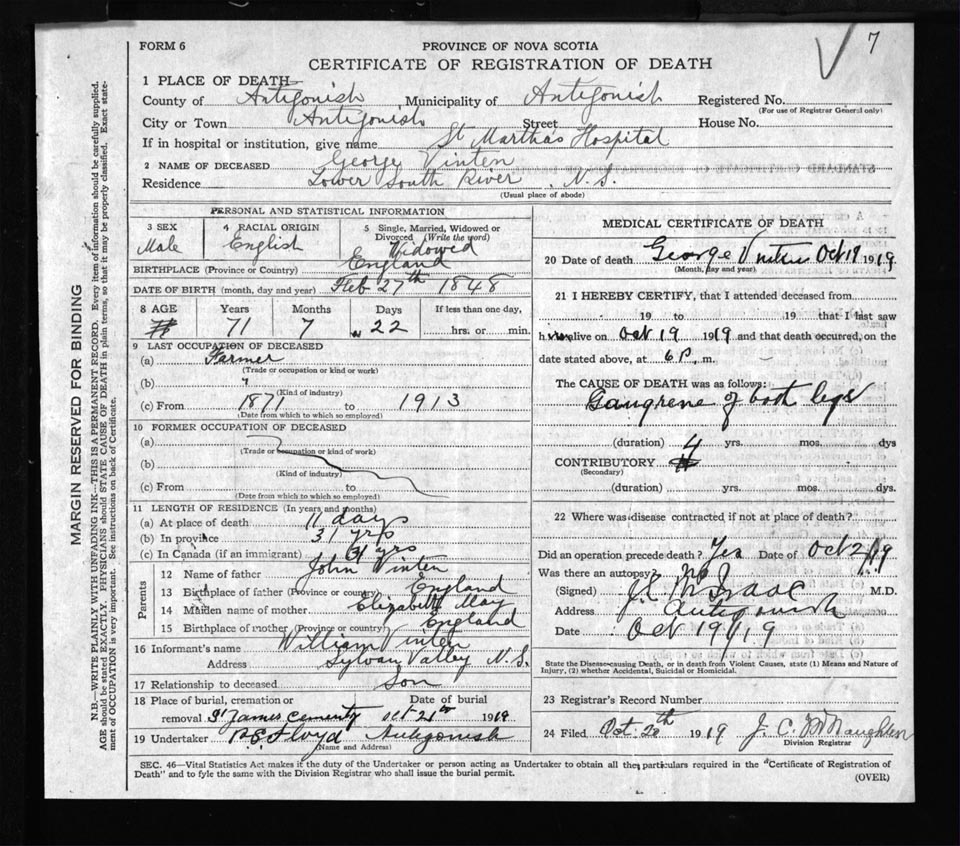 7
FORM 6
PROVINCE OF NOVA SCOTIA
CERTIFICATE OF REGISTRATION OF DEATH
1 PLACE OF DEATH
County of Antigonish Municipality of Antigonish Registered No.
(For use of Registrar General only)
City or Town Antigonish Street House No.
If in hospital or institution, give name St Marthas Hospital
2 NAME OF DECEASED George Vinten
Residence Lower South River N.S.
(Usual place of abode)
PERSONAL AND STATISTICAL INFORMATION
3 SEX
Male
4 RACIAL ORIGIN
English
5 Single, Married, Widowed or
Divorced (Write the word)
Widowed
BIRTHPLACE (Province or Country) England
DATE OF BIRTH (month, day and year) Feb 27th 1848
8 AGE Years Months Days If less than one day,
71 7 22 hrs. or min.
9 LAST OCCUPATION OF DECEASED
(a) Farmer
(Trade or occupation or kind of work)
(b)
(Kind of industry)
(c) From 1871 to 1913
(Date from which to which so employed)
10 FORMER OCCUPATION OF DECEASED
(a)
(Trade or occupation or kind of work)
(b)
(Kind of industry)
(c) From to
(Date from which to which so employed)
11 LENGTH OF RESIDENCE (In years and months)
(a) At place of death 11 days
(b) In province 31 yrs
(c) In Canada (if an immigrant) 31 yrs
Parents
12 Name of father John Vinten
13 Birthplace of father (Province or country) England
14 Maiden name of mother Elizabeth May
15 Birthplace of mother (Province or country) England
16 Informant's name William Vinten
Address Sylvan Valley N.S.
17 Relationship to deceased Son
18 Place of burial, cremation or Date of burial
removal St James Cementy Oct 21st 1919
19 Undertaker R.E. Floyd Antigonish
(Name and Address)
MEDICAL CERTIFICATE OF DEATH
20 Date of death George Vinten Oct 19 1919
(Month, day and year)
21 I HEREBY CERTIFY, that I attended deceased from
19 to 19 that I last saw
him alive on Oct 19 1919 and that death occurred, on the
date stated above, at 6 P. m.
The CAUSE OF DEATH was as follows:
Gangrene of both legs
(duration) 4 yrs. mos. dys
CONTRIBUTORY
(Secondary)
(duration) yrs. mos. dys.
22 Where was disease contracted, if not at place of death?
Did an operation precede death? Yes Date of Oct 2/19
Was there an autopsy? No
(Signed) M.D.
Address Antigonish
Date Oct 19/19
State the Disease-causing Death, or in death from Violent Causes, state (1) Means and Nature of
Injury, (2) whether Accidental, Suicidal or Homicidal.
23 Registrar's Record Number
24 Filed Oct. 20th 1919 J. C. McNaughton
Division Registrar
SEC. 46—Vital Statistics Act makes it the duty of the Undertaker or person acting as Undertaker to obtain all the particulars required in the "Certificate of Registration of
Death" and to fyle the same with the Division Registrar who shall issue the burial permit.
(OVER)
MARGIN RESERVED FOR BINDING
N.B.—WRITE PLAINLY WITH UNFADING INK—THIS IS A PERMANENT RECORD. Every item of information should be carefully supplied.
AGE should be stated EXACTLY. PHYSICIANS should STATE CAUSE OF DEATH in plain terms, so that it may be properly classified. Exact state-
ment of OCCUPATION is very important. See instructions on back of Certificate.